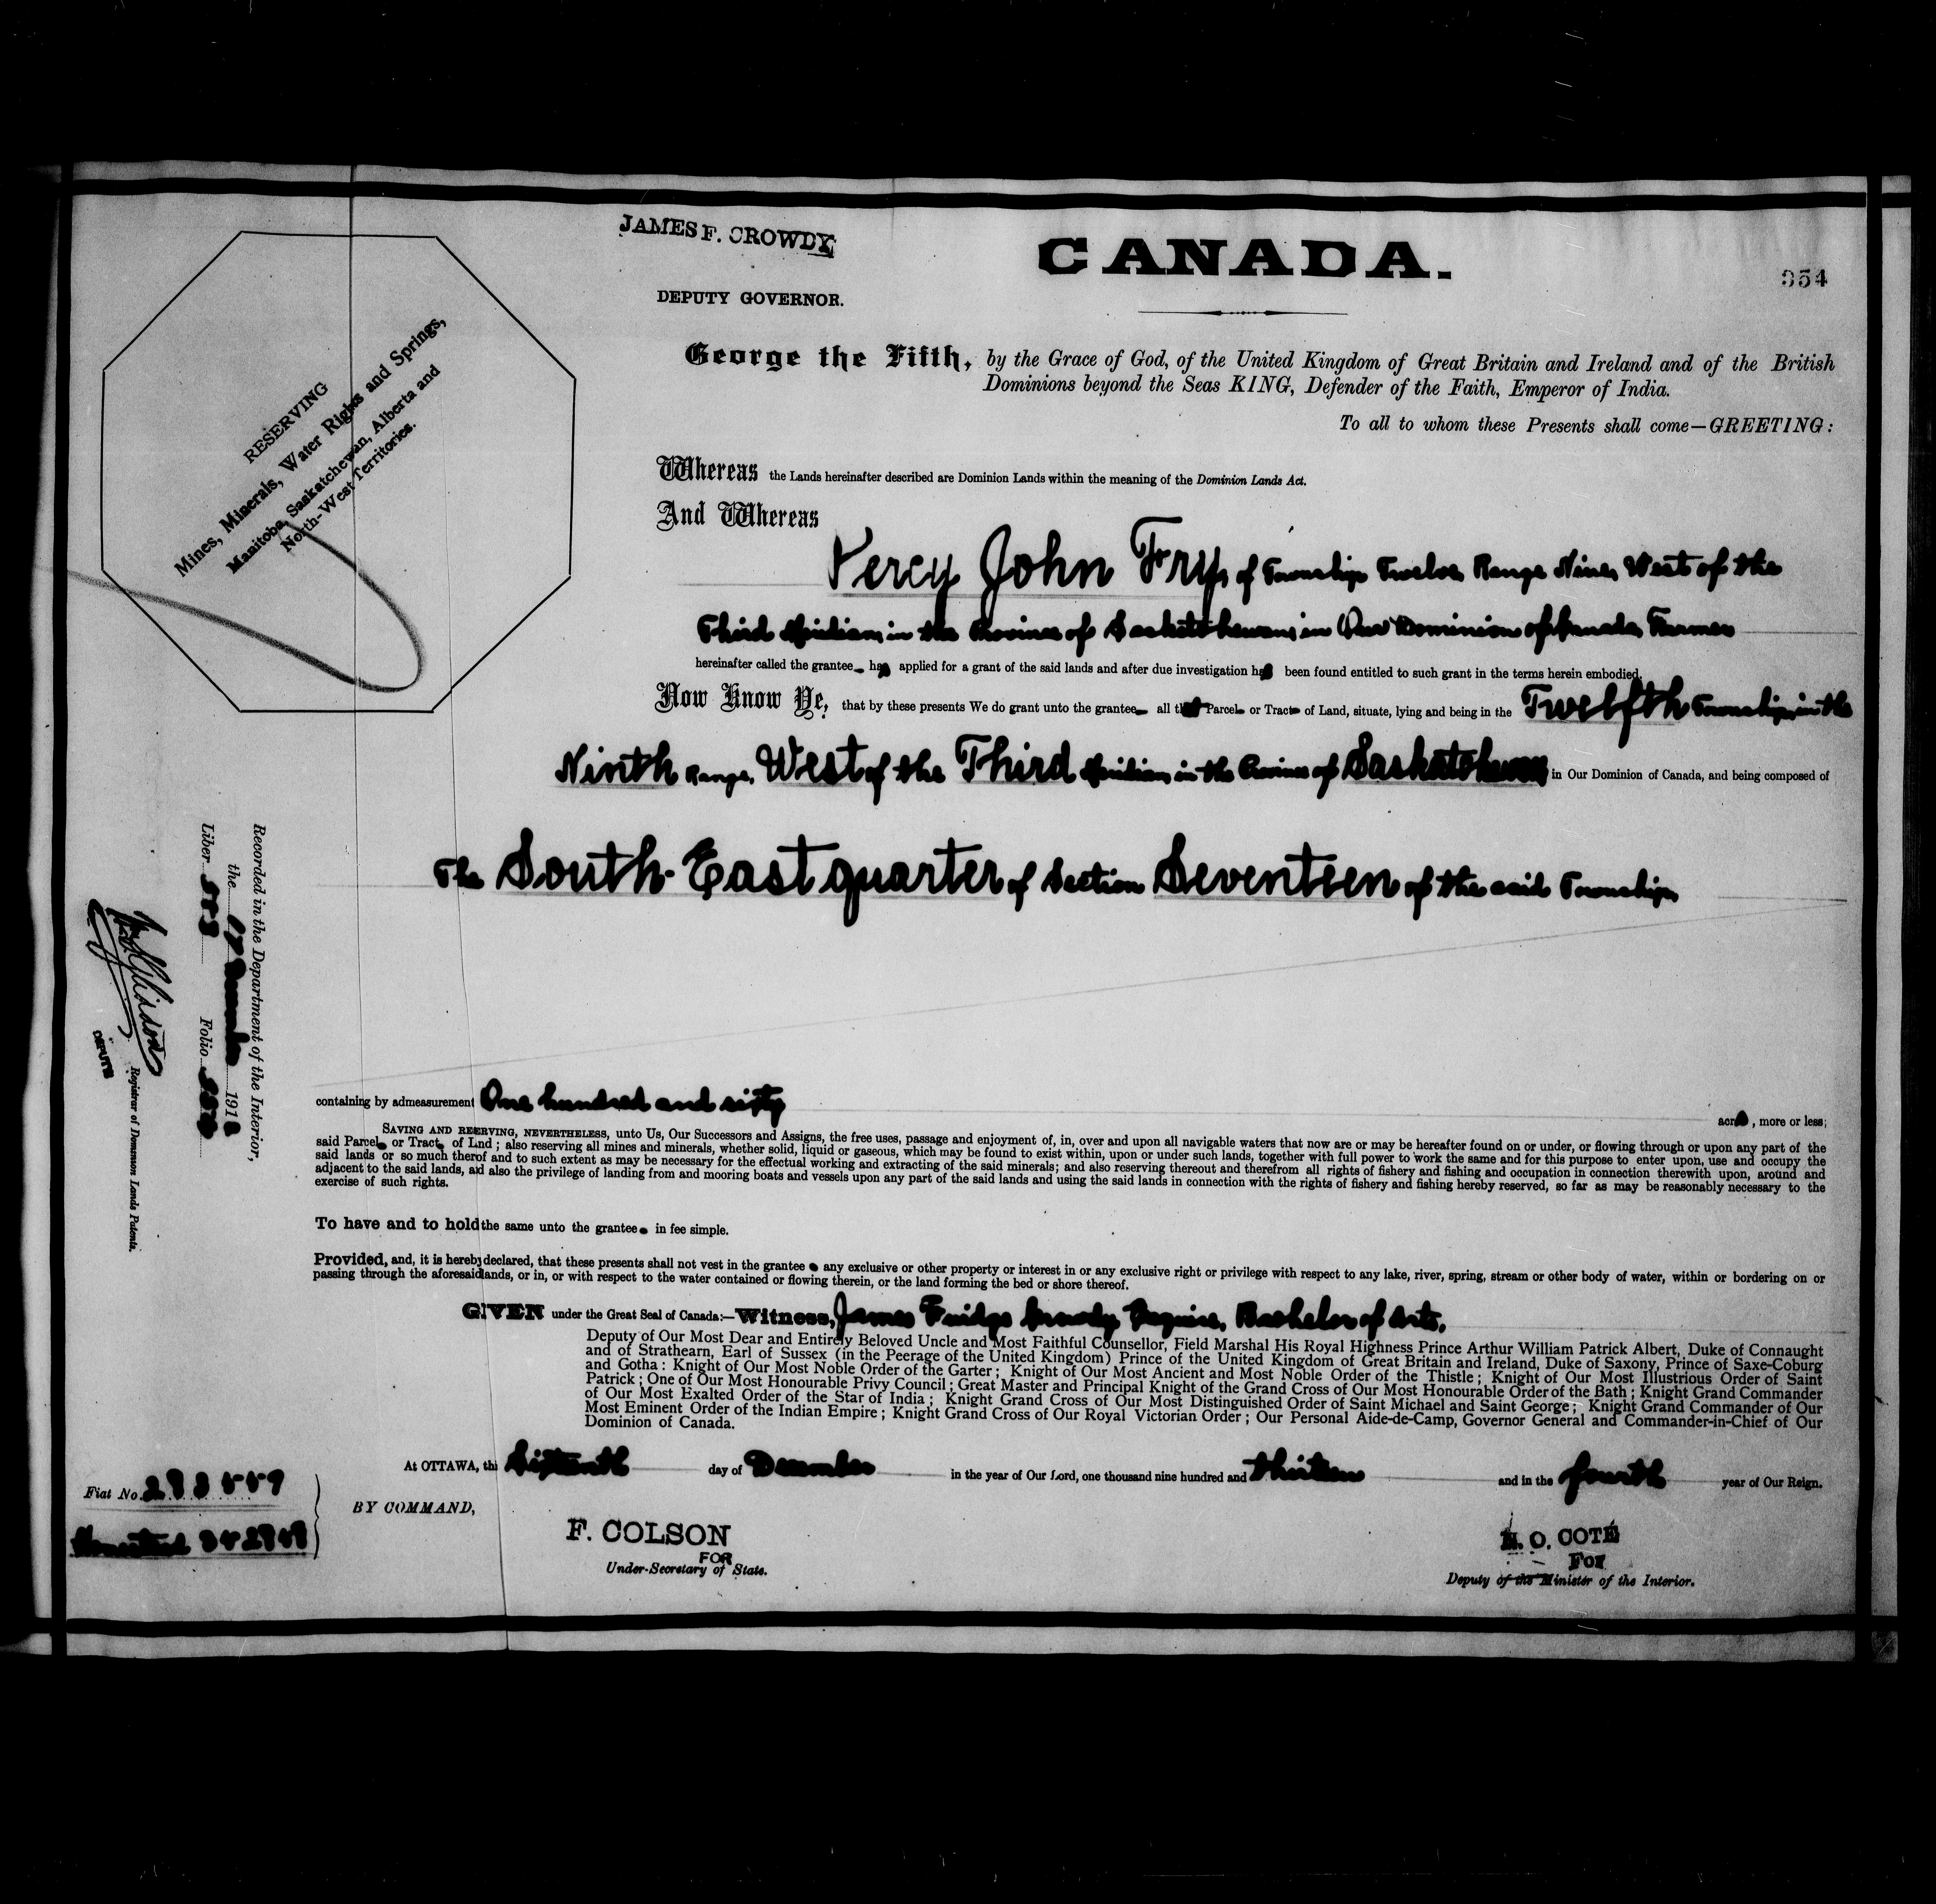 JAMES F. CROWDY
DEPUTY GOVERNOR.
CANADA.
354
RESERVING
Mines, Minerals, Water Rights and Springs,
Manitoba, Saskatchewan, Alberta and
North-West Territories.
George the Fifth, by the Grace of God, of the United Kingdom of Great Britain and Ireland and of the British
Dominions beyond the Seas KING, Defender of the Faith, Emperor of India.
To all to whom these Presents shall come—GREETING:
Whereas the Lands hereinafter described are Dominion Lands within the meaning of the Dominion Lands Act.
And Whereas
Percy John Fry, of Township Twelve, Range Nine, West of the
Third Meridian, in the Province of Saskatchewan, in Our Dominion of Canada, Farmer
hereinafter called the grantee has applied for a grant of the said lands and after due investigation has been found entitled to such grant in the terms herein embodied.
Now Know Ye, that by these presents We do grant unto the grantee all that Parcel or Tract of Land, situate, lying and being in the Twelfth Township, in the
Ninth Range, West of the Third Meridian, in the Province of Saskatchewan in Our Dominion of Canada, and being composed of
The South-East quarter of Section Seventeen of the said Township
containing by admeasurement One hundred and sixty
acres, more or less;
SAVING AND RESERVING, NEVERTHELESS, unto Us, Our Successors and Assigns, the free uses, passage and enjoyment of, in, over and upon all navigable waters that now are or may be hereafter found on or under, or flowing through or upon any part of the
said Parcel or Tract of Lnd; also reserving all mines and minerals, whether solid, liquid or gaseous, which may be found to exist within, upon or under such lands, together with full power to work the same and for this purpose to enter upon, use and occupy the
said lands or so much therof and to such extent as may be necessary for the effectual working and extracting of the said minerals; and also reserving thereout and therefrom all rights of fishery and fishing and occupation in connection therewith upon, around and
adjacent to the said lands, and also the privilege of landing from and mooring boats and vessels upon any part of the said lands and using the said lands in connection with the rights of fishery and fishing hereby reserved, so far as may be reasonably necessary to the
exercise of such rights.
To have and to hold the same unto the grantee in fee simple.
Provided, and, it is hereby declared, that these presents shall not vest in the grantee any exclusive or other property or interest in or any exclusive right or privilege with respect to any lake, river, spring, stream or other body of water, within or bordering on or
passing through the aforesaid lands, or in, or with respect to the water contained or flowing therein, or the land forming the bed or shore thereof.
GIVEN under the Great Seal of Canada:—Witness, James Fuidge Crowdy Esquire, Bachelor of Arts,
Deputy of Our Most Dear and Entirely Beloved Uncle and Most Faithful Counsellor, Field Marshal His Royal Highness Prince Arthur William Patrick Albert, Duke of Connaught
and of Strathearn, Earl of Sussex (in the Peerage of the United Kingdom) Prince of the United Kingdom of Great Britain and Ireland, Duke of Saxony, Prince of Saxe-Coburg
and Gotha: Knight of Our Most Noble Order of the Garter; Knight of Our Most Ancient and Most Noble Order of the Thistle; Knight of Our Most Illustrious Order of Saint
Patrick; One of Our Most Honourable Privy Council; Great Master and Principal Knight of the Grand Cross of Our Most Honourable Order of the Bath; Knight Grand Commander
of Our Most Exalted Order of the Star of India; Knight Grand Cross of Our Most Distinguished Order of Saint Michael and Saint George; Knight Grand Commander of Our
Most Eminent Order of the Indian Empire; Knight Grand Cross of Our Royal Victorian Order; Our Personal Aide-de-Camp, Governor General and Commander-in-Chief of Our
Dominion of Canada.
At OTTAWA, the Sixteenth day of December in the year of Our Lord, one thousand nine hundred and thirteen and in the fourth year of Our Reign.
BY COMMAND,
F. COLSON
FOR
Under-Secretary of State.
N. O. COTÉ
For
Deputy of the Minister of the Interior.
Fiat No.
Homestead
Recorded in the Department of the Interior,
the 17 December 191
Liber
Folio
DEPUTY
Registrar of Dominion Lands Patents.